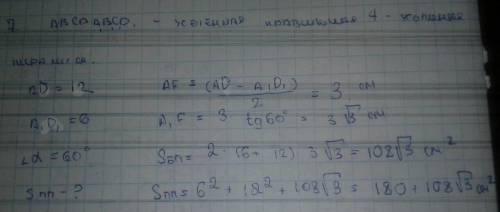 7 ABCDA₁B₁C₁D₁ - усечённая правильная 4-угольная
пирамида.
AD = 12
AF = (AD - A₁D₁) / 2 = 3 см
A₁D₁ = 6
A₁F = 3 tg60° = 3√3 см
∠α = 60°
Sбп = 2 · (6 + 12) 3√3 = 108√3 см²
Sпп - ?
Sпп = 6² + 12² + 108√3 = 180 + 108√3 см²